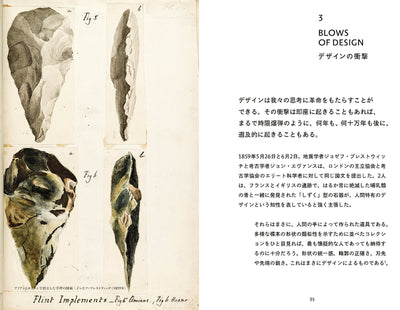 Fig 5
b
Fig 6
b
Flint Implements – Fig 5 Amiens, Fig 6 Hoxne
3
BLOWS
OF DESIGN
デザインの衝撃
デザインは我々の思考に革命をもたらすことが
できる。その衝撃は即座に起きることもあれば、
まるで時限爆弾のように、何年も、何十万年も後に、
遡及的に起きることもある。
1859年5月26日と6月2日、地質学者ジョゼフ・プレストウィッ
チと考古学者ジョン・エヴァンスは、ロンドンの王立協会と考
古学協会のエリート科学者に対して同じ論文を提出した。2人
は、フランスとイギリスの遺跡で、はるか昔に絶滅した哺乳類
の骨と一緒に発見された「しずく」型の石器が、人間特有のデ
ザインという知性を表していると強く主張した。
それらはまさに、人間の手によって作られた道具である。
多様な標本の形状の類似性を示すために並べたコレクシ
ョンをひと目見れば、最も懐疑的な人であっても納得す
るのに十分だろう。形状の統一感、輪郭の正確さ、刃先
や先端の鋭さ、これはまさにデザインによるものである
35